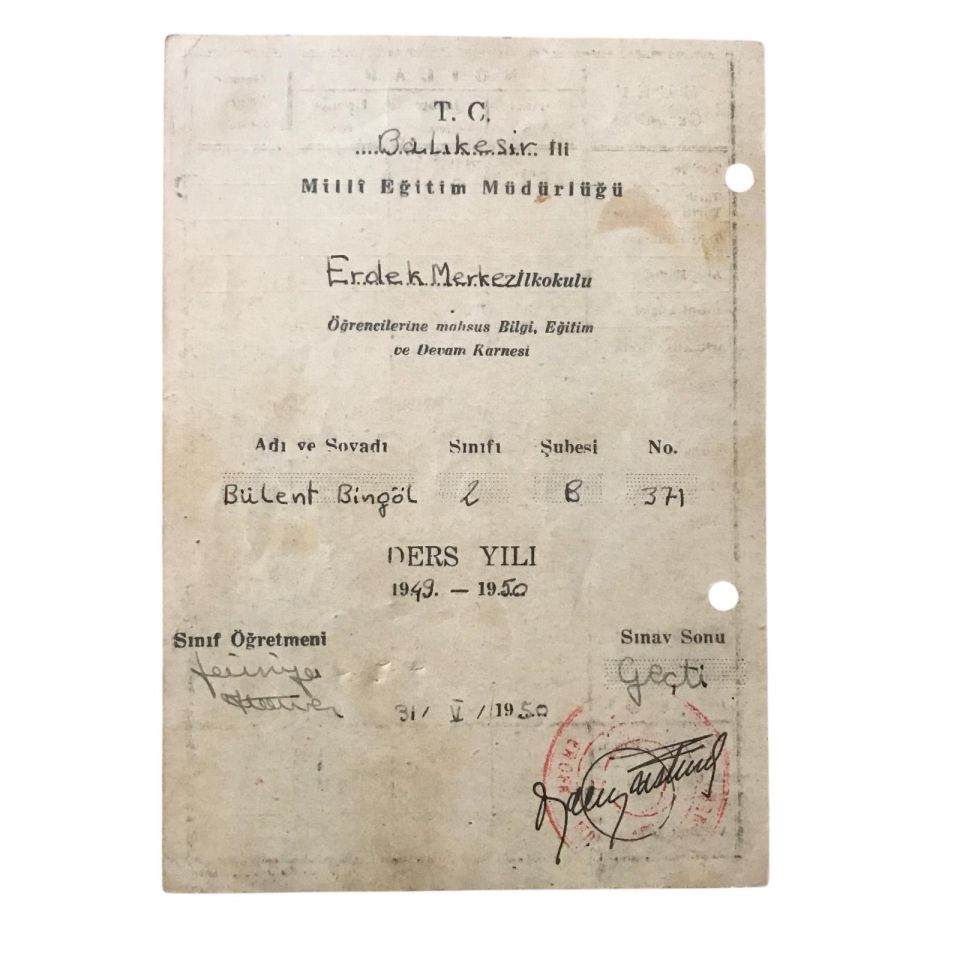 T. C.
Balıkesir İli
Millî Eğitim Müdürlüğü
Erdek Merkez İlkokulu
Öğrencilerine mahsus Bilgi, Eğitim
ve Devam Karnesi
Adı ve Soyadı Sınıfı Şubesi No.
Bülent Bingöl 2 B 371
DERS YILI
1949. — 1950
Sınıf Öğretmeni Sınav Sonu
Geçti
31/ V / 1950